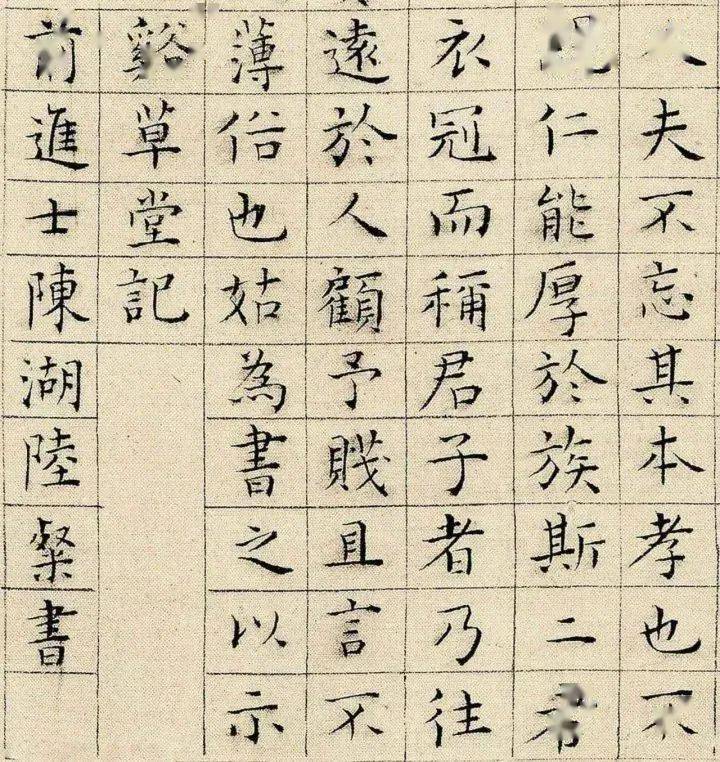 夫不忘其本孝也不
仁能厚於族斯二者
衣冠而稱君子者乃往
遠於人顧予賤且言不
薄俗也姑為書之以示
谿草堂記
前進士陳湖陸粲書